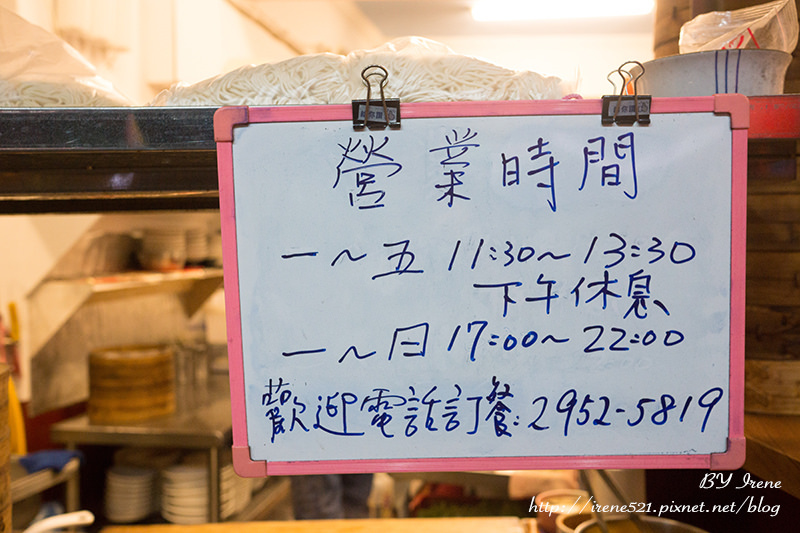 營業時間
一～五 11:30～13:30
下午休息
一～日 17:00～22:00
歡迎電話訂餐:2952-5819
BY Irene
http://irene521.pixnet.net/blog